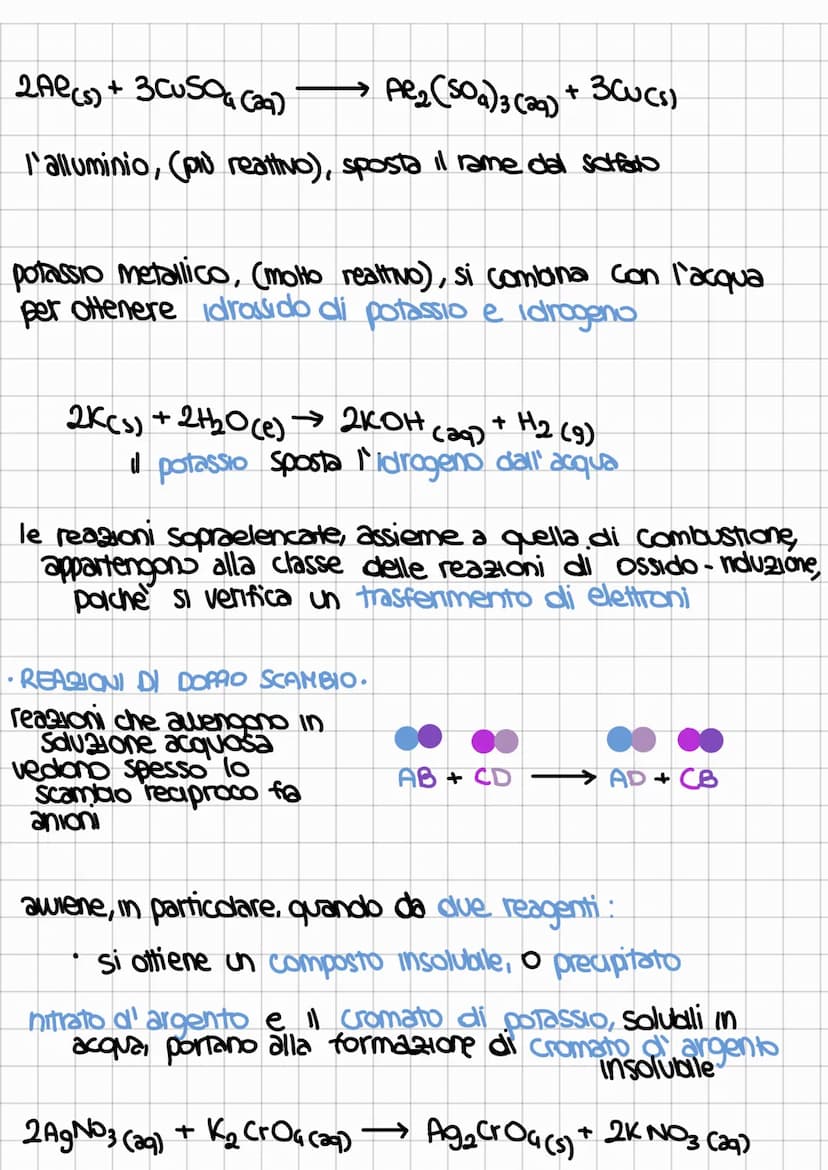 2Al(s) + 3CuSO4 (aq) → Al2(SO4)3 (aq) + 3Cu(s)
l'alluminio, (più reattivo), sposta il rame dal solfato
potassio metallico, (molto reattivo), si combina con l'acqua
per ottenere idrossido di potassio e idrogeno
2K(s) + 2H2O(l) → 2KOH (aq) + H2 (g)
il potassio sposta l'idrogeno dall'acqua
le reazioni sopraelencate, assieme a quella di combustione,
appartengono alla classe delle reazioni di ossido-riduzione,
poiché si verifica un trasferimento di elettroni
• REAZIONI DI DOPPIO SCAMBIO •
reazioni che avvengono in
soluzione acquosa
vedono spesso lo
scambio reciproco fra
anioni
AB + CD → AD + CB
avviene, in particolare, quando da due reagenti:
• si ottiene un composto insolubile, o precipitato
nitrato d'argento e il cromato di potassio, solubili in
acqua, portano alla formazione di cromato d'argento
insolubile
2AgNO3 (aq) + K2CrO4 (aq) → Ag2CrO4(s) + 2KNO3 (aq)